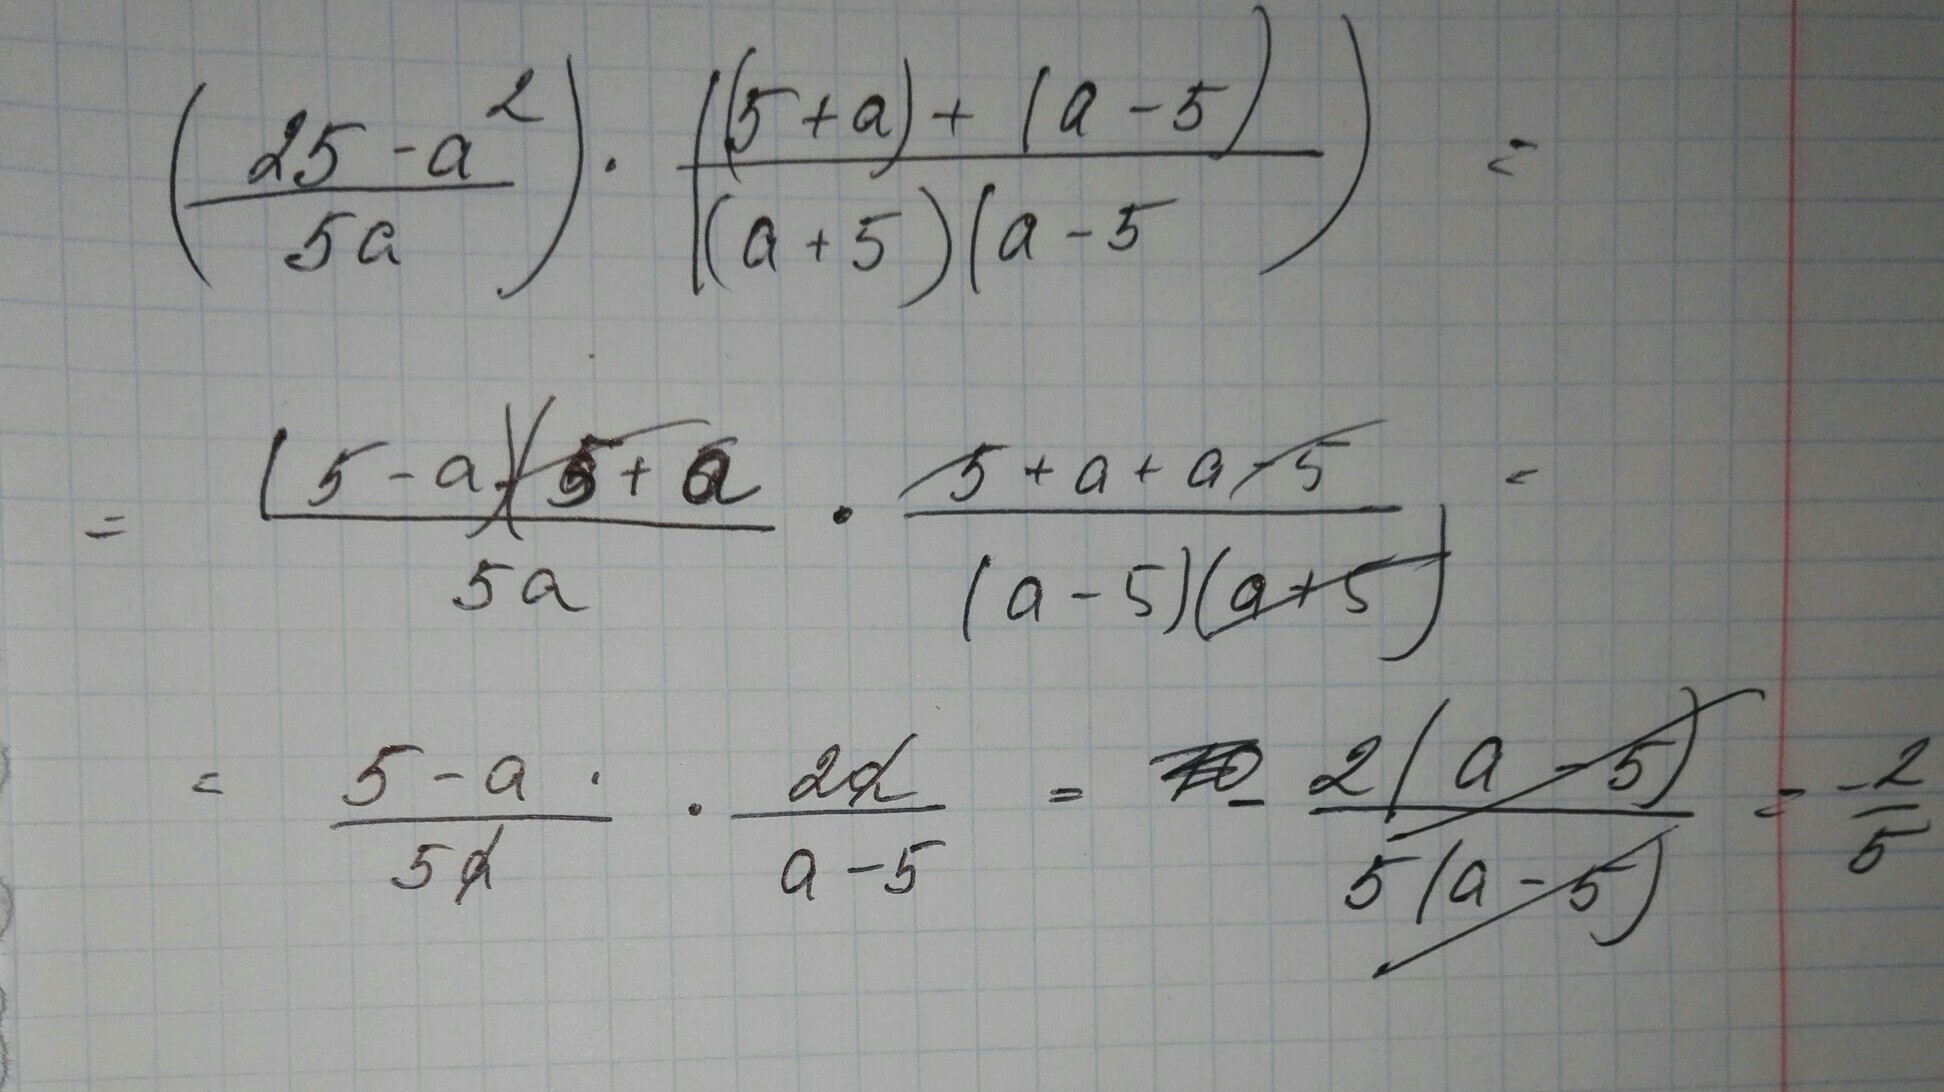 (25 - a² / 5a) · ((5 + a) + (a - 5) / (a + 5)(a - 5) =
= (5 - a)(5 + a / 5a · 5 + a + a - 5 / (a - 5)(a + 5) =
= 5 - a · / 5a · 2a / a - 5 = - 2(a - 5) / 5(a - 5) = -2 / 5